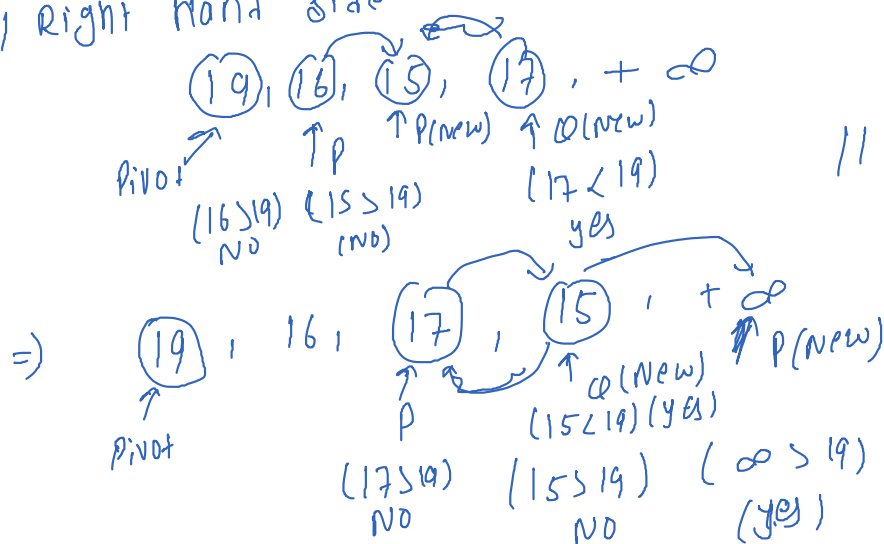 ) Right Hand Side
19, 16, 15, 17, + ∞
Pivot P P(New) Q(New)
(16>19) (15>19) (17<19)
NO (NO) yes
//
=) 19, 16, 17, 15, + ∞
Pivot P Q(New) P(New)
(15<19) (yes)
(17>19) (15>19) (∞>19)
NO NO (yes)